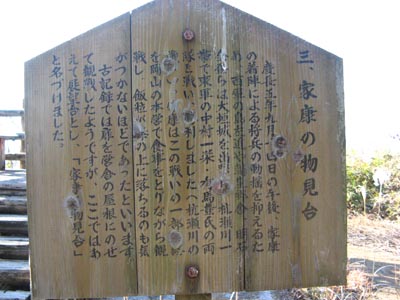 三、家康の物見台
慶長五年九月十四日の午後、家康
の着陣による将兵の動揺を抑えるた
め、西軍の島左近
らは大垣城を出 杭瀬川一
帯で東軍の中村一栄 有馬豊氏の両
隊と戦い 勝利しました(杭瀬川の
戦い)。家康はこの戦いの一部
を岡山の本営で食事をとりながら観
戦し、飯粒が膝の上に落ちるのも気
がつかないほどであったといいます。
古記録では扉を営舎の屋根にのせ
て観戦したようですが、ここではあ
えて展望台とし、「家康の物見台」
と名づけました。